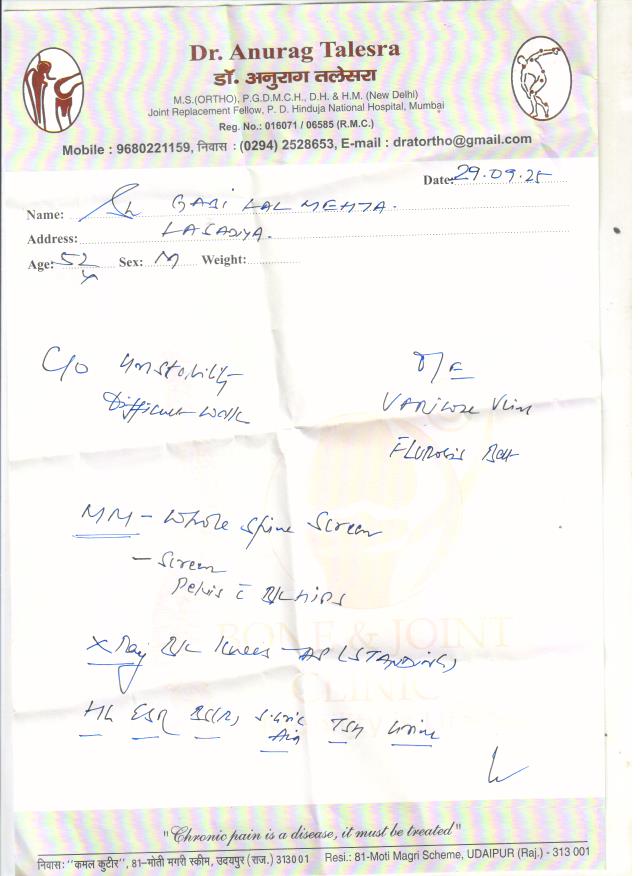 Dr. Anurag Talesra
डॉ. अनुराग तलेसरा
M.S.(ORTHO), P.G.D.M.C.H., D.H. & H.M. (New Delhi)
Joint Replacement Fellow, P. D. Hinduja National Hospital, Mumbai
Reg. No.: 016071 / 06585 (R.M.C.)
Mobile : 9680221159, निवास : (0294) 2528653, E-mail : dratortho@gmail.com
Date: 29.09.25
Name: Sh LAL MEHTA.
Address: LASADIYA.
Age: 52 y Sex: M Weight:
C/o Unstability
Difficult walk
O/E
VARICOSE Vein
Whole Spine Screen
- Screen
Pelvis c B/L HIPS
X Ray B/L Knees - AP (STANDING)
ESR TSH Urine
BONE & JOINT
CLINIC
"Chronic pain is a disease, it must be treated"
निवास: "कमल कुटीर", 81-मोती मगरी स्कीम, उदयपुर (राज.) 313001 Resi.: 81-Moti Magri Scheme, UDAIPUR (Raj.) - 313 001